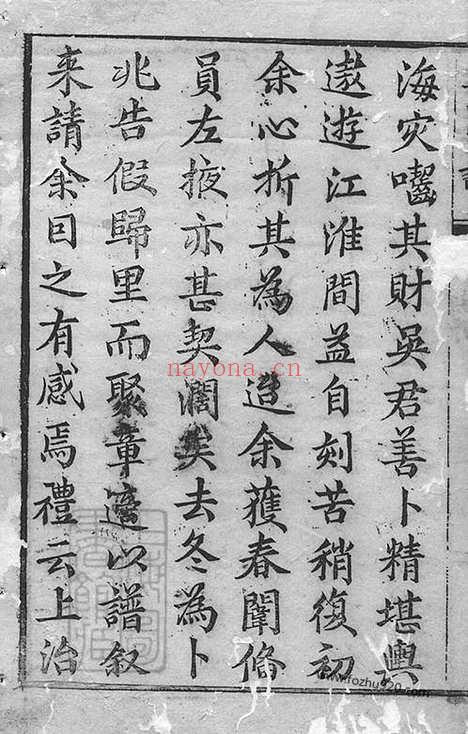 海灾囓其財吳君善卜精堪輿
遨遊江淮間益自刻苦稍復初
余心折其為人迨余獲春闈偹
員左掖亦甚契濶矣去冬為卜
兆告假歸里而聚章適以譜叙
来請余因之有感焉禮云上治
nayona.cn
www.fozhu920.com